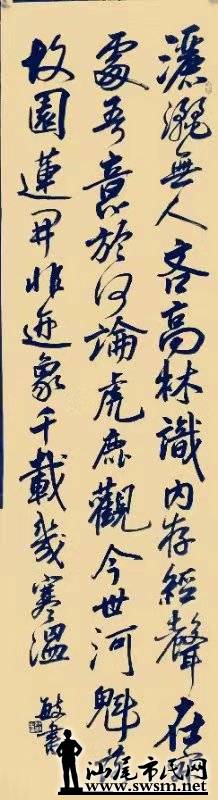 灑無人吝高林識內存經聲在
處吾意於何論虎鹿觀今世河魁
故園蓮開非並象千載幾寒溫
敏書
汕尾市民网
www.swsm.net